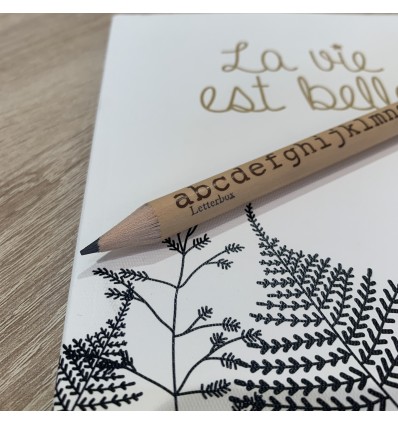 La vie
est belle
abcdefghijklmn
Letterbox